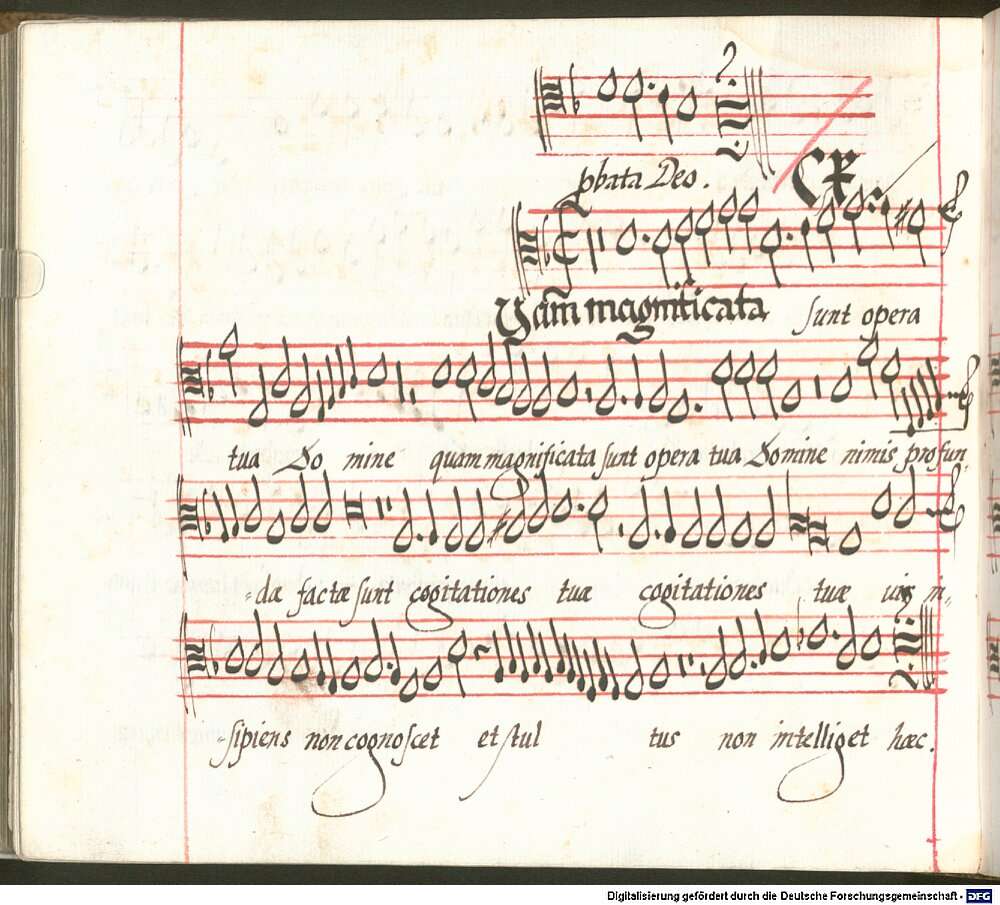 pbata Deo.
CR
Quam magnificata sunt opera
tua Do mine quam magnificata sunt opera tua Domine nimis profun-
-dæ factæ sunt cogitationes tuæ cogitationes tuæ uir in-
-sipiens non cognoscet et stul tus non intelliget hæc.
Digitalisierung gefördert durch die Deutsche Forschungsgemeinschaft - DFG